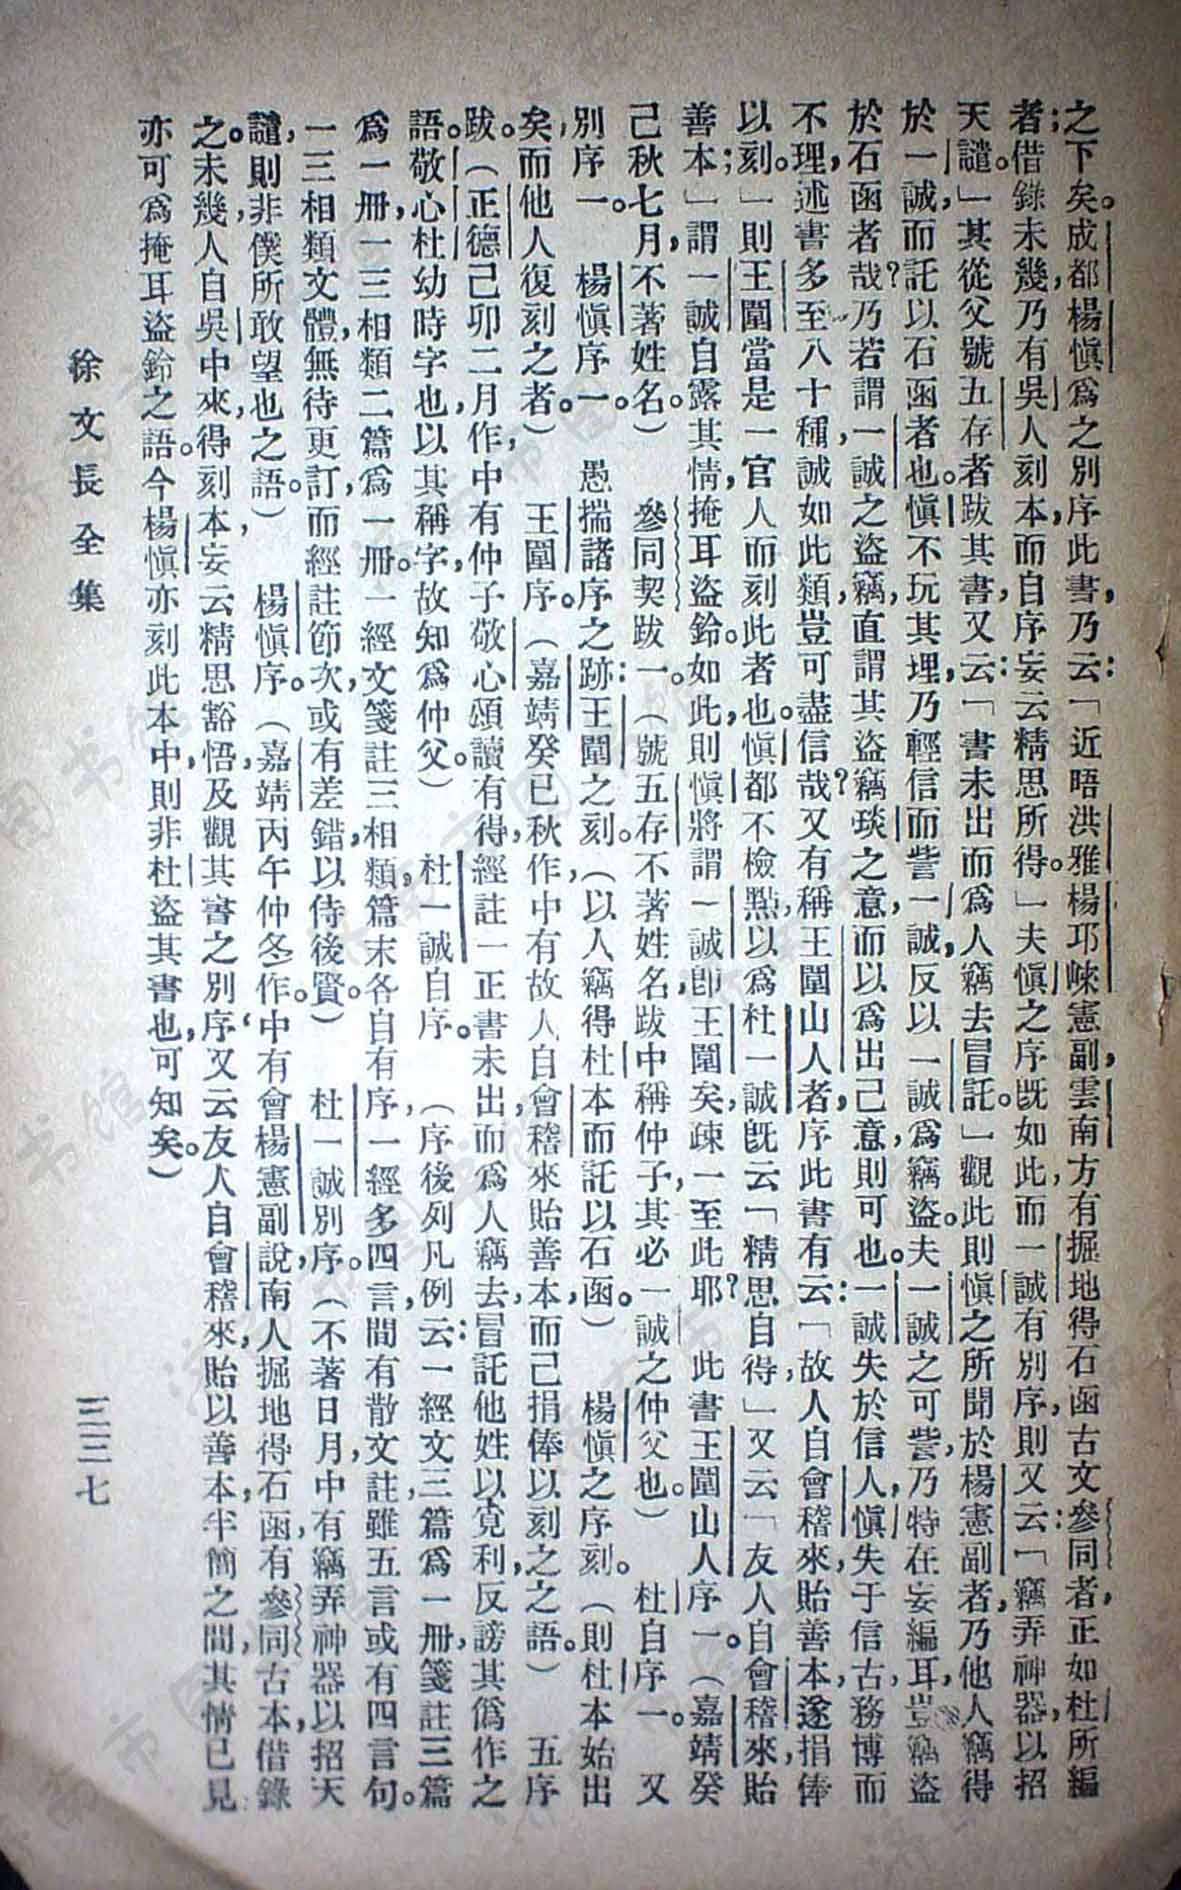 之下矣。成都楊愼爲之別序此書，乃云：「近晤洪雅楊邛崍憲副，雲南方有掘地得石函古文參同者，正如杜所編
者；借錄未幾，乃有吳人刻本，而自序妄云精思所得。」夫愼之序旣如此，而一誠有別序，則又云：「竊弄神器，以招
天譴。」其從父號五存者，跋其書，又云：「書未出而爲人竊去冒託。」觀此則愼之所聞於楊憲副者，乃他人竊得
於一誠，而託以石函者也。愼不玩其理，乃輕信而訾一誠，反以一誠爲竊盜。夫一誠之可訾，乃特在妄編耳，豈竊盜
於石函者哉？乃若謂一誠之盜竊，直謂其盜竊琰之意，而以爲出己意則可也。一誠失於信人，愼失于信古，務博而
不理，述書多至八十種，誠如此類，豈可盡信哉？又有稱王圍山人者，序此書有云：「故人自會稽來，貽善本，遂捐俸
以刻。」則王圍當是一官人而刻此者也。愼都不檢點，以爲杜一誠旣云「精思自得」又云「友人自會稽來貽
善本；」謂一誠自露其情，掩耳盜鈴。如此，則愼將謂一誠卽王圍矣，疎一至此耶？　此書王圍山人序一。（嘉靖癸
己秋七月，不著姓名）　參同契跋一。（號五存不著姓名，跋中稱仲子，其必一誠之仲父也。）　杜自序一。　又
別序一。　楊愼序一。　愚揣諸序之跡：王圍之刻。（以人竊得杜本而託以石函。）　楊愼之序刻。（則杜本始出
矣，而他人復刻之者。）　王圍序。（嘉靖癸巳秋作，中有故人自會稽來貽善本，而己捐俸以刻之之語。）　五序
跋。（正德己卯二月作，中有仲子敬心頌讀有得，經註一正，書未出而爲人竊去，冒託他姓以覓利，反謗其僞作之
語。敬心杜幼時字也，以其稱字，故知爲仲父。）　杜一誠自序。　（序後列凡例云：一經文三篇爲一册，箋註三篇
爲一册，一三相類二篇爲一册。一經文箋註三相類，篇末各自有序，一經多四言，間有散文，註雖五言，或有四言句。
一三相類文體，無待更訂，而經註節次，或有差錯，以待後賢。）　杜一誠別序。（不著日月，中有竊弄神器，以招天
譴，則非僕所敢望也之語。）　楊愼序。（嘉靖丙午仲冬作。中有會楊憲副說，南人掘地得石函，有參同古本，借錄
之。未幾，人自吳中來，得刻本，妄云精思豁悟，及觀其書之別序，又云友人自會稽來，貽以善本，半簡之間，其情已見，
亦可爲掩耳盜鈴之語。今楊愼亦刻此本中，則非杜盜其書也，可知矣。）
徐文長全集　三三七